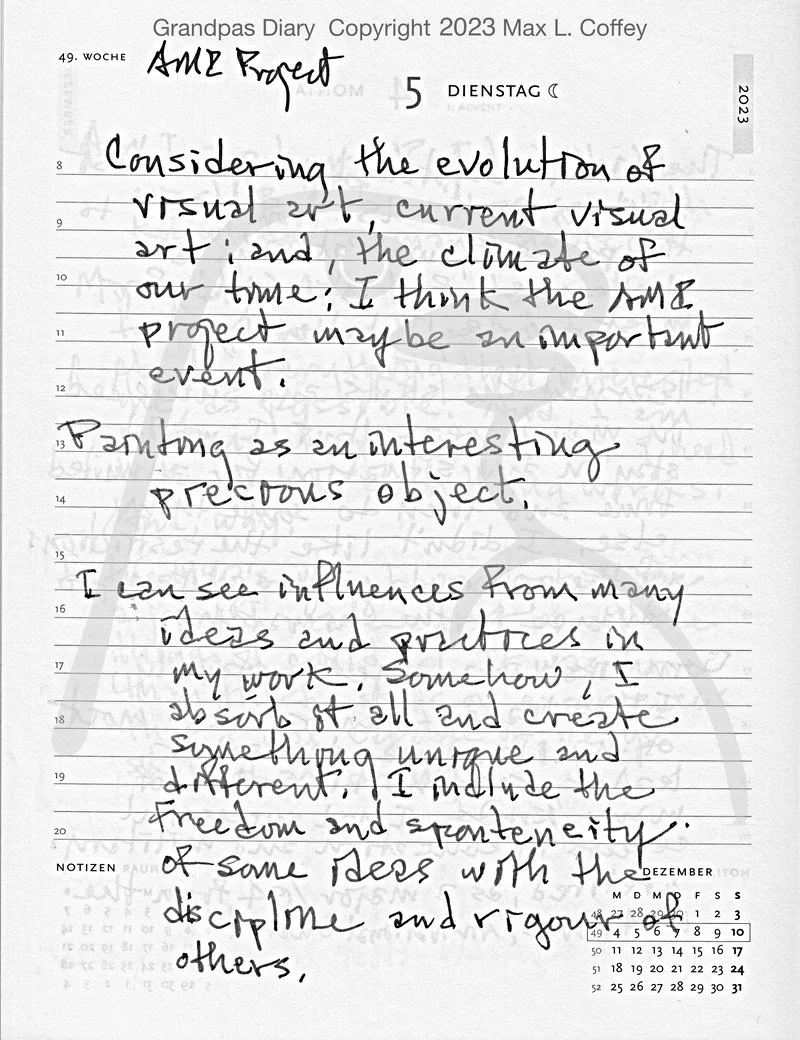 Grandpas Diary Copyright 2023 Max L. Coffey
49. WOCHE AME Project
5 DIENSTAG ☾
2023
8 Considering the evolution of
visual art, current visual
9 art; and, the climate of
10 our time; I think the AME
11 project may be an important
12 event.
13 Painting as an interesting
14 precious object.
15
I can see influences from many
16 ideas and practices in
17 my work. Somehow, I
18 absorb it all and create
something unique and
19 different. I include the
20 freedom and sponteneity
NOTIZEN of some ideas with the DEZEMBER
M D M D F S S
discipline and rigour of
48 27 28 29 30 1 2 3
49 4 5 6 7 8 9 10
others.
50 11 12 13 14 15 16 17
51 18 19 20 21 22 23 24
52 25 26 27 28 29 30 31